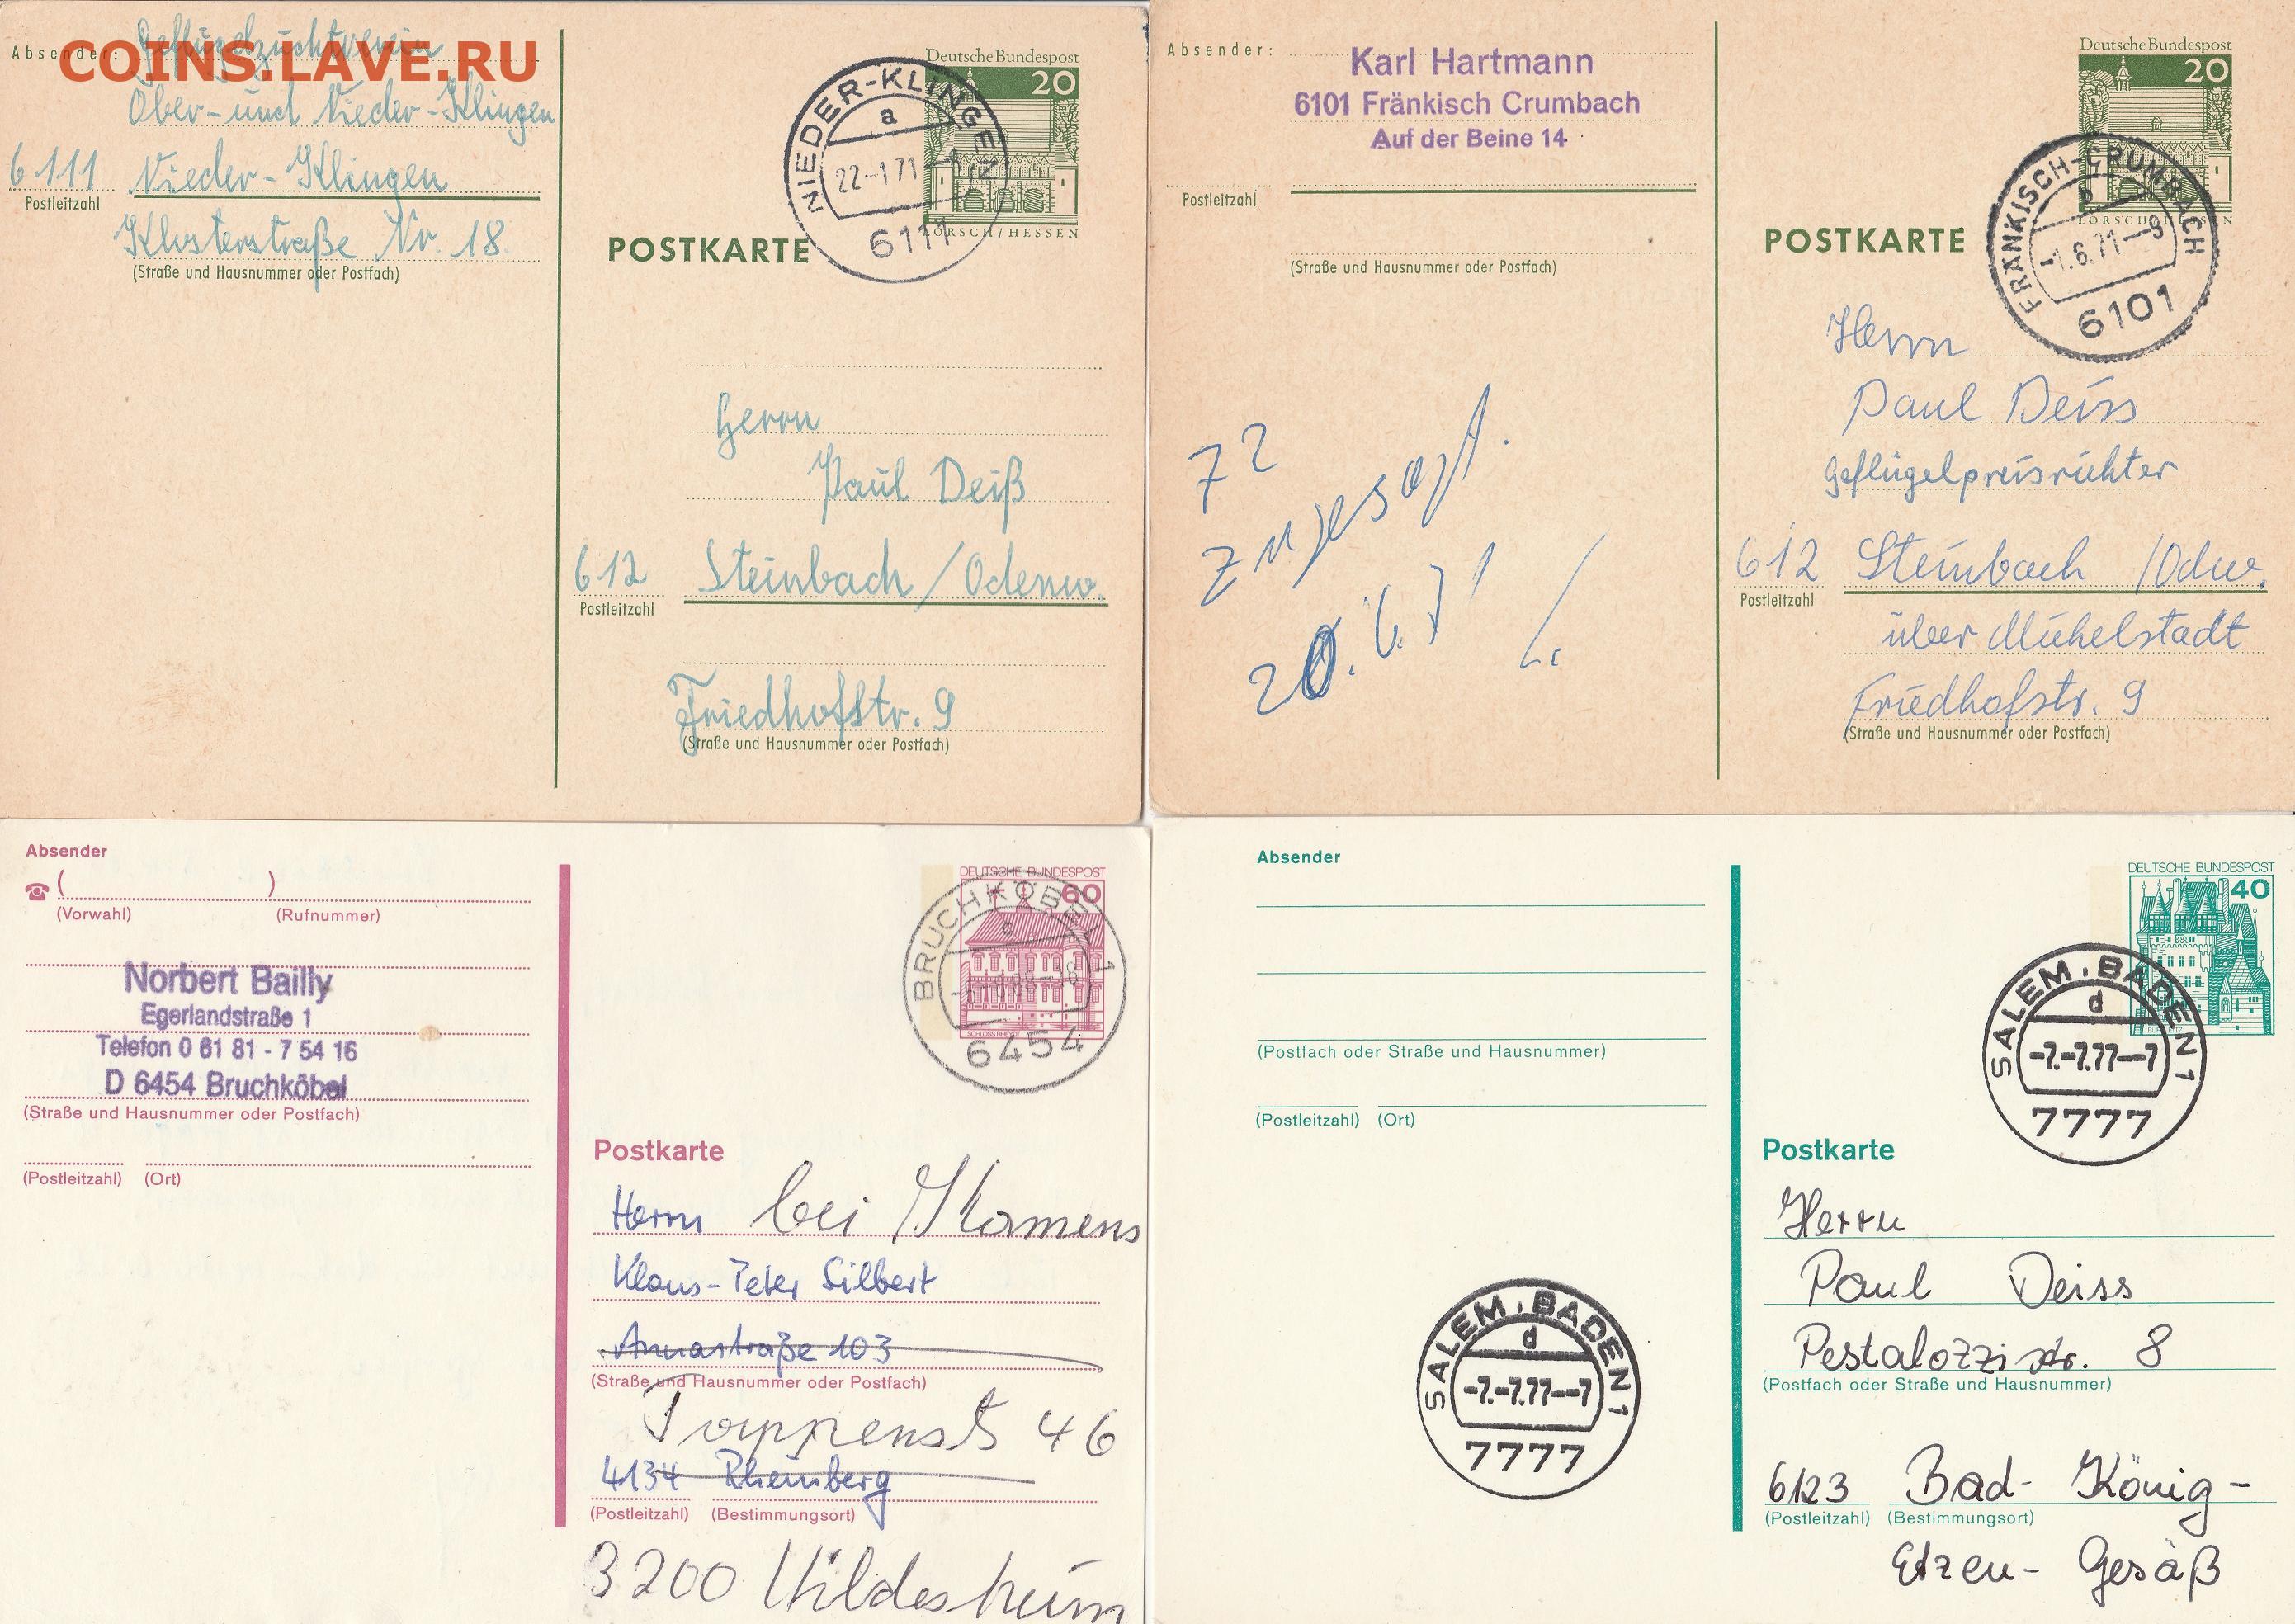 COINS.LAVE.RU
Absender:
Geflügelzuchtverein
Ober- und Nieder-Klingen
6111 Nieder-Klingen
Postleitzahl
Klosterstraße Nr. 18.
(Straße und Hausnummer oder Postfach)
Deutsche Bundespost
20
LORSCH/HESSEN
NIEDER-KLINGEN
a
22-1.71
6111
POSTKARTE
Herrn
Paul Deiß
612 Steinbach/Odenw.
Postleitzahl
Friedhofstr. 9
(Straße und Hausnummer oder Postfach)
Absender:
Karl Hartmann
6101 Fränkisch Crumbach
Auf der Beine 14
Postleitzahl
(Straße und Hausnummer oder Postfach)
72
zugesagt.
20.6.71
Deutsche Bundespost
20
LORSCH/HESSEN
FRÄNKISCH-CRUMBACH
b
-1.6.71--9
6101
POSTKARTE
Herrn
Paul Deiss
Geflügelpreisrichter
612 Steinbach /Odw.
Postleitzahl
über Michelstadt
Friedhofstr. 9
(Straße und Hausnummer oder Postfach)
Absender
( )
(Vorwahl) (Rufnummer)
Norbert Bailly
Egerlandstraße 1
Telefon 0 61 81 - 7 54 16
D 6454 Bruchköbel
(Straße und Hausnummer oder Postfach)
(Postleitzahl) (Ort)
DEUTSCHE BUNDESPOST
60
SCHLOSS RHEYDT
BRUCHKÖBEL 1
c
6454
Postkarte
Herrn bei
Klaus-Peter Silbert
Annastraße 103
(Straße und Hausnummer oder Postfach)
46
4134 Rheinberg
(Postleitzahl) (Bestimmungsort)
3200 Hildesheim
Absender
(Postfach oder Straße und Hausnummer)
(Postleitzahl) (Ort)
SALEM, BADEN 1
d
-7.-7.77--7
7777
DEUTSCHE BUNDESPOST
40
SALEM, BADEN 1
d
-7.-7.77--7
7777
Postkarte
Herrn
Paul Deiss
Pestalozzistr. 8
(Postfach oder Straße und Hausnummer)
6123 Bad-König-
(Postleitzahl) (Bestimmungsort)
Etzen-Gesäß